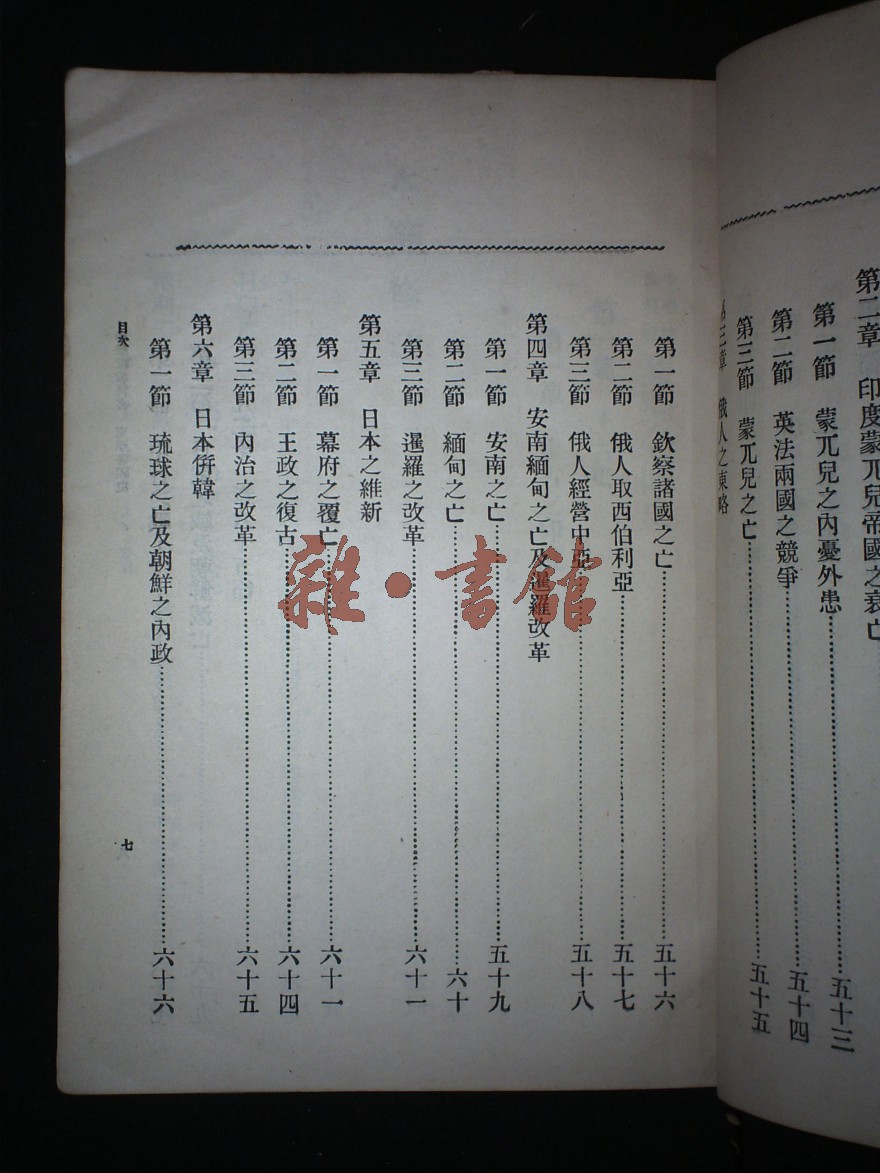 第二章　印度蒙兀兒帝國之衰亡
第一節　蒙兀兒之內憂外患……五十三
第二節　英法兩國之競爭……五十四
第三節　蒙兀兒之亡……五十五
第三章　俄人之東略
第一節　欽察諸國之亡……五十六
第二節　俄人取西伯利亞……五十七
第三節　俄人經營中亞……五十八
第四章　安南緬甸之亡及暹羅改革
第一節　安南之亡……五十九
第二節　緬甸之亡……六十
第三節　暹羅之改革……六十一
第五章　日本之維新
第一節　幕府之覆亡……六十一
第二節　王政之復古……六十四
第三節　內治之改革……六十五
第六章　日本併韓
第一節　琉球之亡及朝鮮之內政……六十六
目次
七
雜·書館